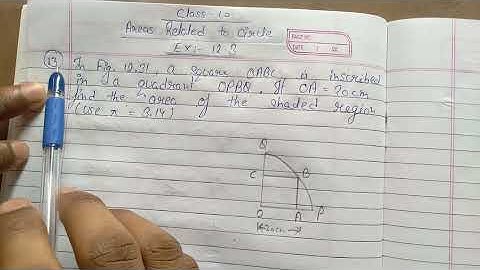 Class-10
Areas Related to Circle
Ex:- 12.3
13 In Fig. 12.31, a square OABC is inscribed
in a quadrant OPBQ. If OA = 20cm
find the area of the shaded region
(Use π = 3.14)
Q
C B
O A P
20cm